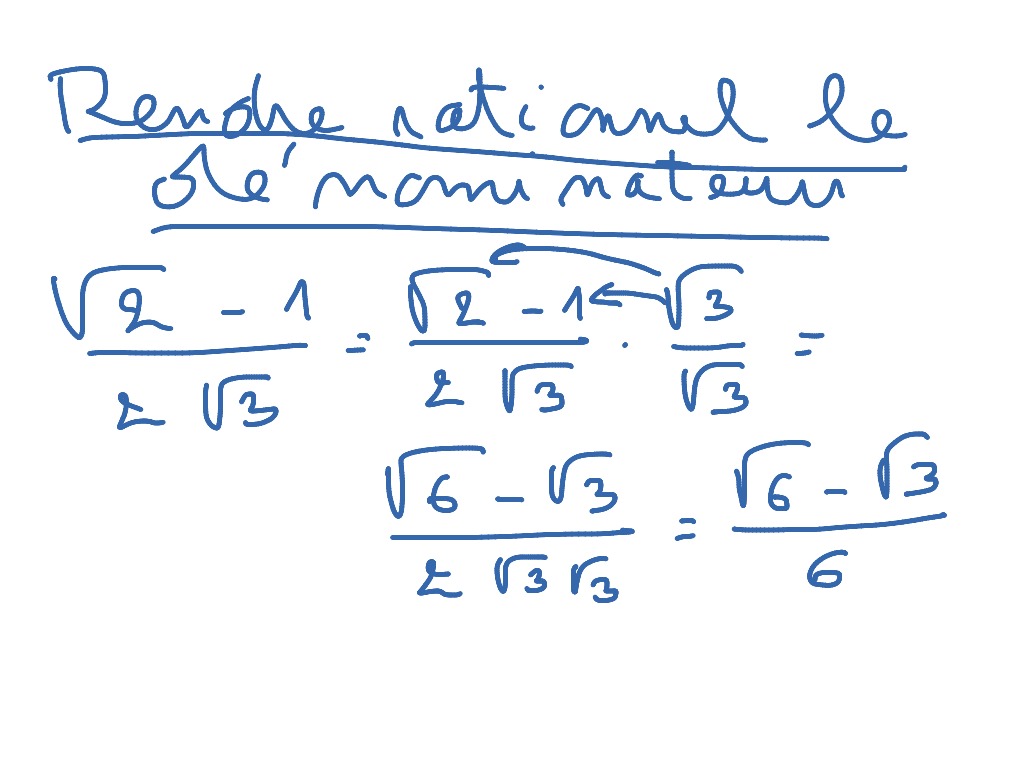 Rendre rationnel le
dénominateur
√2 - 1 / 2√3 = √2 - 1 / 2√3 · √3 / √3 =
√6 - √3 / 2√3√3 = √6 - √3 / 6